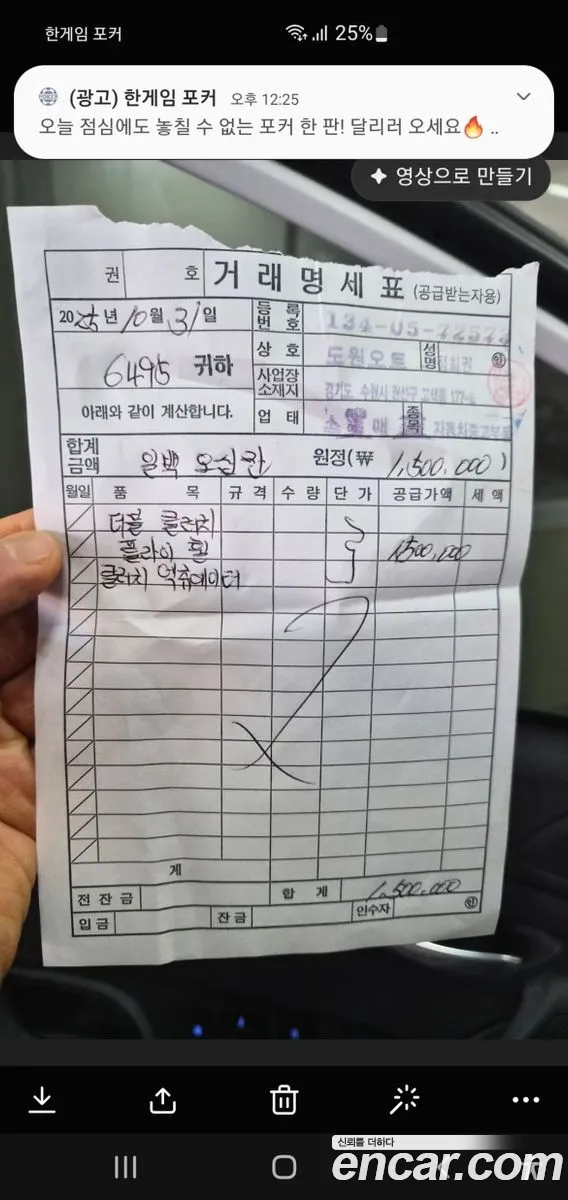 한게임 포커
25%
(광고) 한게임 포커 오후 12:25
오늘 점심에도 놓칠 수 없는 포커 한 판! 달리러 오세요🔥 ..
영상으로 만들기
권 호 거래명세표 (공급받는자용)
2025년 10월 31일
등록번호 134-05-72573
6495 귀하
상호 도원오토 성명 ㊞
사업장소재지 경기도 수원시 권선구
아래와 같이 계산합니다.
업태 소매 종목
합계금액 일백오십만 원정(₩ 1,500,000)
월일 품목 규격 수량 단가 공급가액 세액
더블 클러치
플라이 휠 1,500,000
클러치 엑츄에이터
계
전잔금 합계 1,500,000
입금 잔금 인수자 ㊞
신뢰를 더하다
encar.com